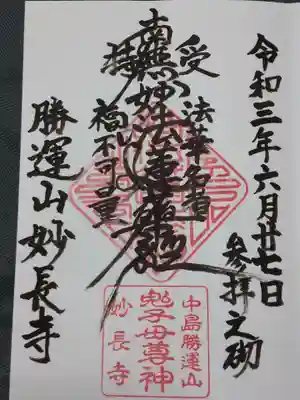 令和三年六月廿七日
参拝之砌
受持法華名者
福不可量
南無妙法蓮華経
勝運山妙長寺
中島勝運山
鬼子母尊神
妙長寺